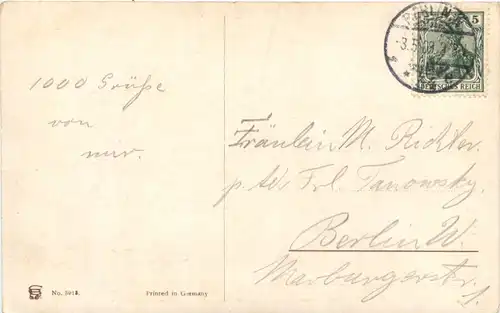 1000 Grüße
von
mir.
BERLIN
5
DEUTSCHES REICH
Fräulein M. Richter.
Frl. Tanowsky.
Berlin W.
Marburgerstr.
1.
No.
Printed in Germany